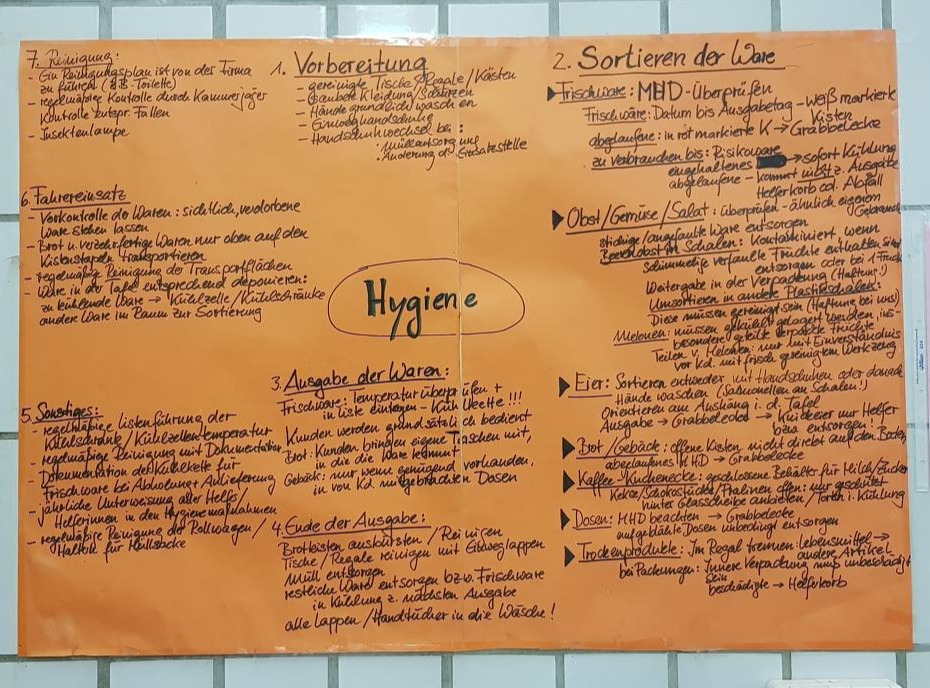 Hygiene
1. Vorbereitung
- gereinigte Tische/Regale/Kästen
- saubere Kleidung/Schürzen
- Hände gründlich waschen
- Einweghandschuhe
- Handschuhwechsel bei:
· Müllentsorgung
· Änderung d. Einsatzstelle
2. Sortieren der Ware
Frischware: MHD-Überprüfen
Frischware: Datum bis Ausgabetag - weiß markierte
Kisten
abgelaufene: in rot markierte K → Grabbelecke
zu verbrauchen bis: Risikoware
eingehaltenes → sofort Kühlung
abgelaufene - kommt nicht z. Ausgabe
Helferkorb od. Abfall
Obst/Gemüse/Salat: überprüfen - ähnlich eigenem
Gebrauch
/angefaulte Ware entsorgen
Beerenobst in Schalen: Kontaminiert, wenn
schimmelige verfaulte Früchte enthalten sind
entsorgen oder bei
Weitergabe in der Verpackung (Haftung!)
Umsortieren in andere Plastikschalen:
Diese müssen gereinigt sein (Haftung bei uns)
Melonen: müssen gekühlt gelagert werden, ins-
besondere geteilte verpackte Früchte
Teilen v. Melonen: nur mit Einverständnis
vor Kd. mit frisch gereinigtem Werkzeug
Eier: Sortieren entweder mit Handschuhen oder danach
Hände waschen (Salmonellen an Schalen!)
Orientieren am Aushang i. d. Tafel
Ausgabe → Grabbelecke → Knickeier nur Helfer
bzw. entsorgen!
Brot/Gebäck: offene Kisten nicht direkt auf den Boden,
abgelaufenes MHD → Grabbelecke
Kaffee-Kuchenecke: geschlossene Behälter für Milch/Zucker
Kekse/Schokostücke/Pralinen offen: nur geschützt
hinter Glasscheibe anbieten/Torten i. Kühlung
Dosen: MHD beachten → Grabbelecke
aufgeblähte Dosen unbedingt entsorgen
Trockenprodukte: Im Regal trennen: Lebensmittel →
andere Artikel
bei Packungen: Innere Verpackung muß unbeschädigt
sein
beschädigte → Helferkorb
3. Ausgabe der Waren:
Frischware: Temperatur überprüfen +
in Liste eintragen - Kühlkette!!!
Kunden werden grundsätzlich bedient
Brot: Kunden bringen eigene Taschen mit,
in die die Ware kommt
Gebäck: nur wenn genügend vorhanden,
in von Kd. mitgebrachten Dosen
4. Ende der Ausgabe:
Brotkisten ausbürsten/Reinigen
Tische/Regale reinigen mit Einweglappen
Müll entsorgen
restliche Ware entsorgen bzw. Frischware
in Kühlung z. nächsten Ausgabe
alle Lappen/Handtücher in die Wäsche!
5. Sonstiges:
- regelmäßige Listenführung der
Kühlschränke/Kühlzellentemperatur
- regelmäßige Reinigung mit Dokumentation
- Dokumentation der Kühlkette für
Frischware bei Abholung + Anlieferung
- jährliche Unterweisung aller Helfer/
Helferinnen in den Hygienemaßnahmen
- regelmäßige Reinigung der Rollwagen/
Halter für Müllsäcke
6. Fahrereinsatz
- Vorkontrolle der Waren: sichtlich, verdorbene
Ware stehen lassen
- Brot u. verzehrfertige Waren nur oben auf den
Kistenstapeln transportieren
- regelmäßige Reinigung der Transportflächen
- Ware in der Tafel entsprechend deponieren:
zu kühlende Ware → Kühlzelle/Kühlschränke
andere Ware im Raum zur Sortierung
7. Reinigung:
- Ein Reinigungsplan ist von der Firma
zu führen (z.B. Toilette)
- regelmäßige Kontrolle durch Kammerjäger
Kontrolle entspr. Fallen
- Insektenlampe